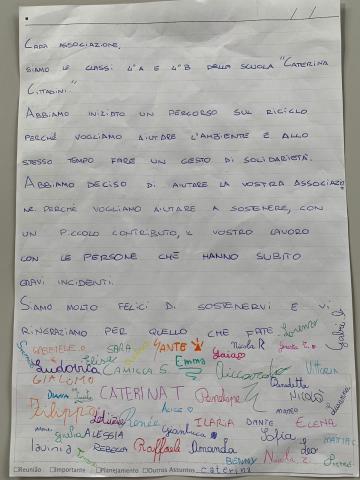 Cara associazione,
siamo le classi 4°A e 4°B della scuola "Caterina
Cittadini".
Abbiamo iniziato un percorso sul riciclo
perché vogliamo aiutare l'ambiente e allo
stesso tempo fare un gesto di solidarietà.
Abbiamo deciso di aiutare la vostra associazio
ne perché vogliamo aiutare a sostenere, con
un piccolo contributo, il vostro lavoro
con le persone che hanno subito
gravi incidenti.
Siamo molto felici di sostenervi e vi
ringraziamo per quello che fate.
Lorenzo
GABRIELE SARA SANTE Nicola R
Ludovica Elisa CAMILLA S. Emma Gaia Riccardo Vittoria
GIACOMO Benedetta
DIANA CATERINA T Penelope MARCO NICOLÒ
Filippo Renée Alice ILARIA DANTE ELENA
Giulia ALESSIA Gianluca Sofia MATTIA
lavinia REBECCA Raffaele Amanda BENNY Nicola Leo
Reunião Importante Planejamento Outros Assuntos caterina